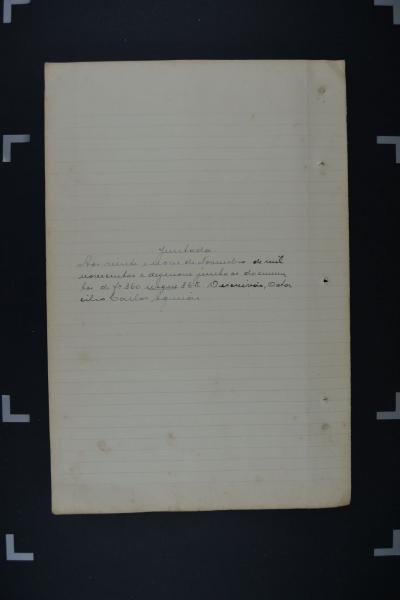 Juntada
Aos vinte e nove de Novembro de mil
novecentos e dezenove junto os documen
tos de fs 360 usque 368. O escrivão,
cilio Carlos